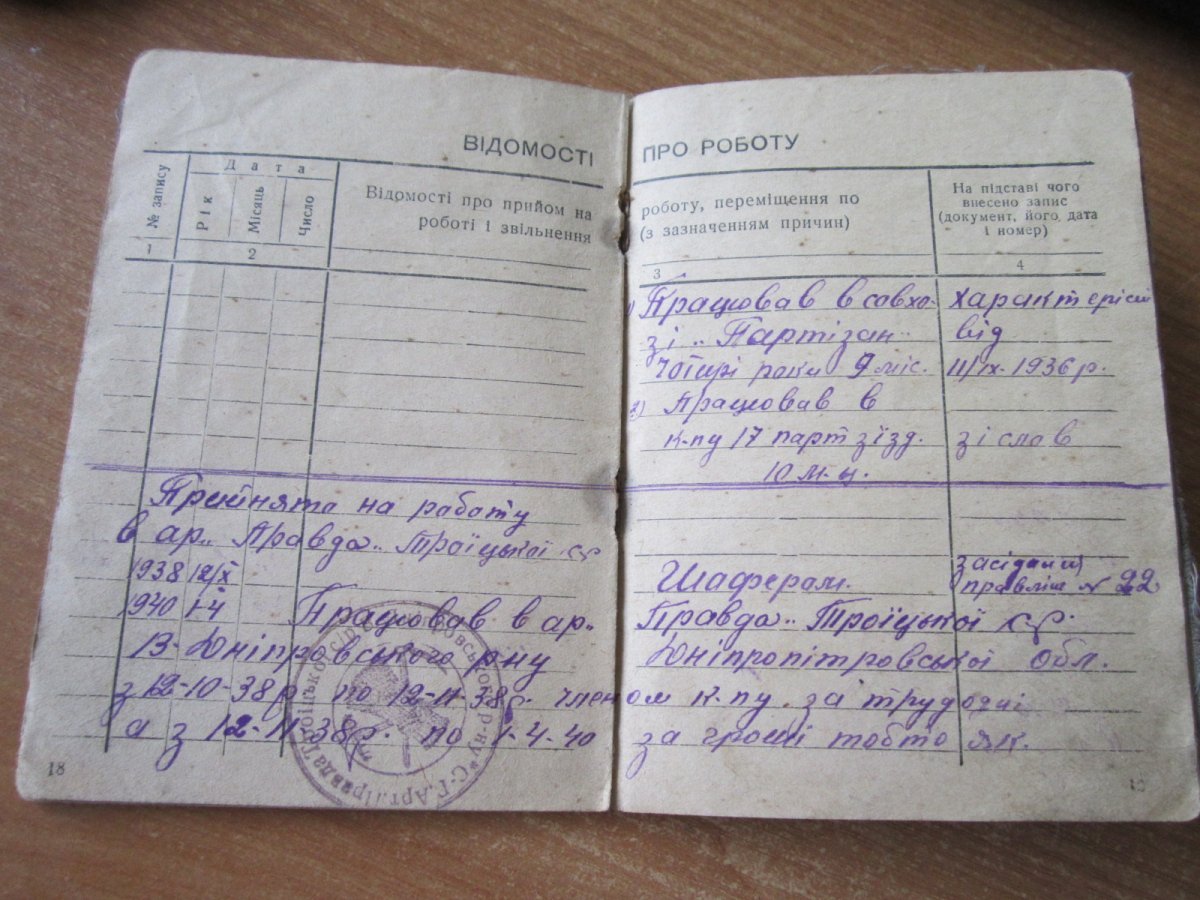 ВІДОМОСТІ ПРО РОБОТУ
№ запису
Дата
Рік
Місяць
Число
Відомості про прийом на
роботі і звільнення
роботу, переміщення по
(з зазначенням причин)
На підставі чого
внесено запис
(документ, його дата
і номер)
1
2
3
4
1) Працював в совхо-
зі „Партізан„
Чотирі роки 9 міс.
2) Працював в
к-пу 17 парт зїзд.
10 м-ц.
від
11/ІХ. 1936 р.
зі слав
Прийнято на работу
в ар.. Правда.. Троїцької с/р
1938 12/X
Шафером.
засідания
правління № 22
1940 1-4 Працював в ар.. Правда.. Троїцької с/р.
13-Дніпровського рну Дніпропітровської обл.
з 12-10-38 р по 12-11-38 р. членом к-пу за трудодні
а з 12-11-38 р. по 1-4-40 за гроші тобто як.
18